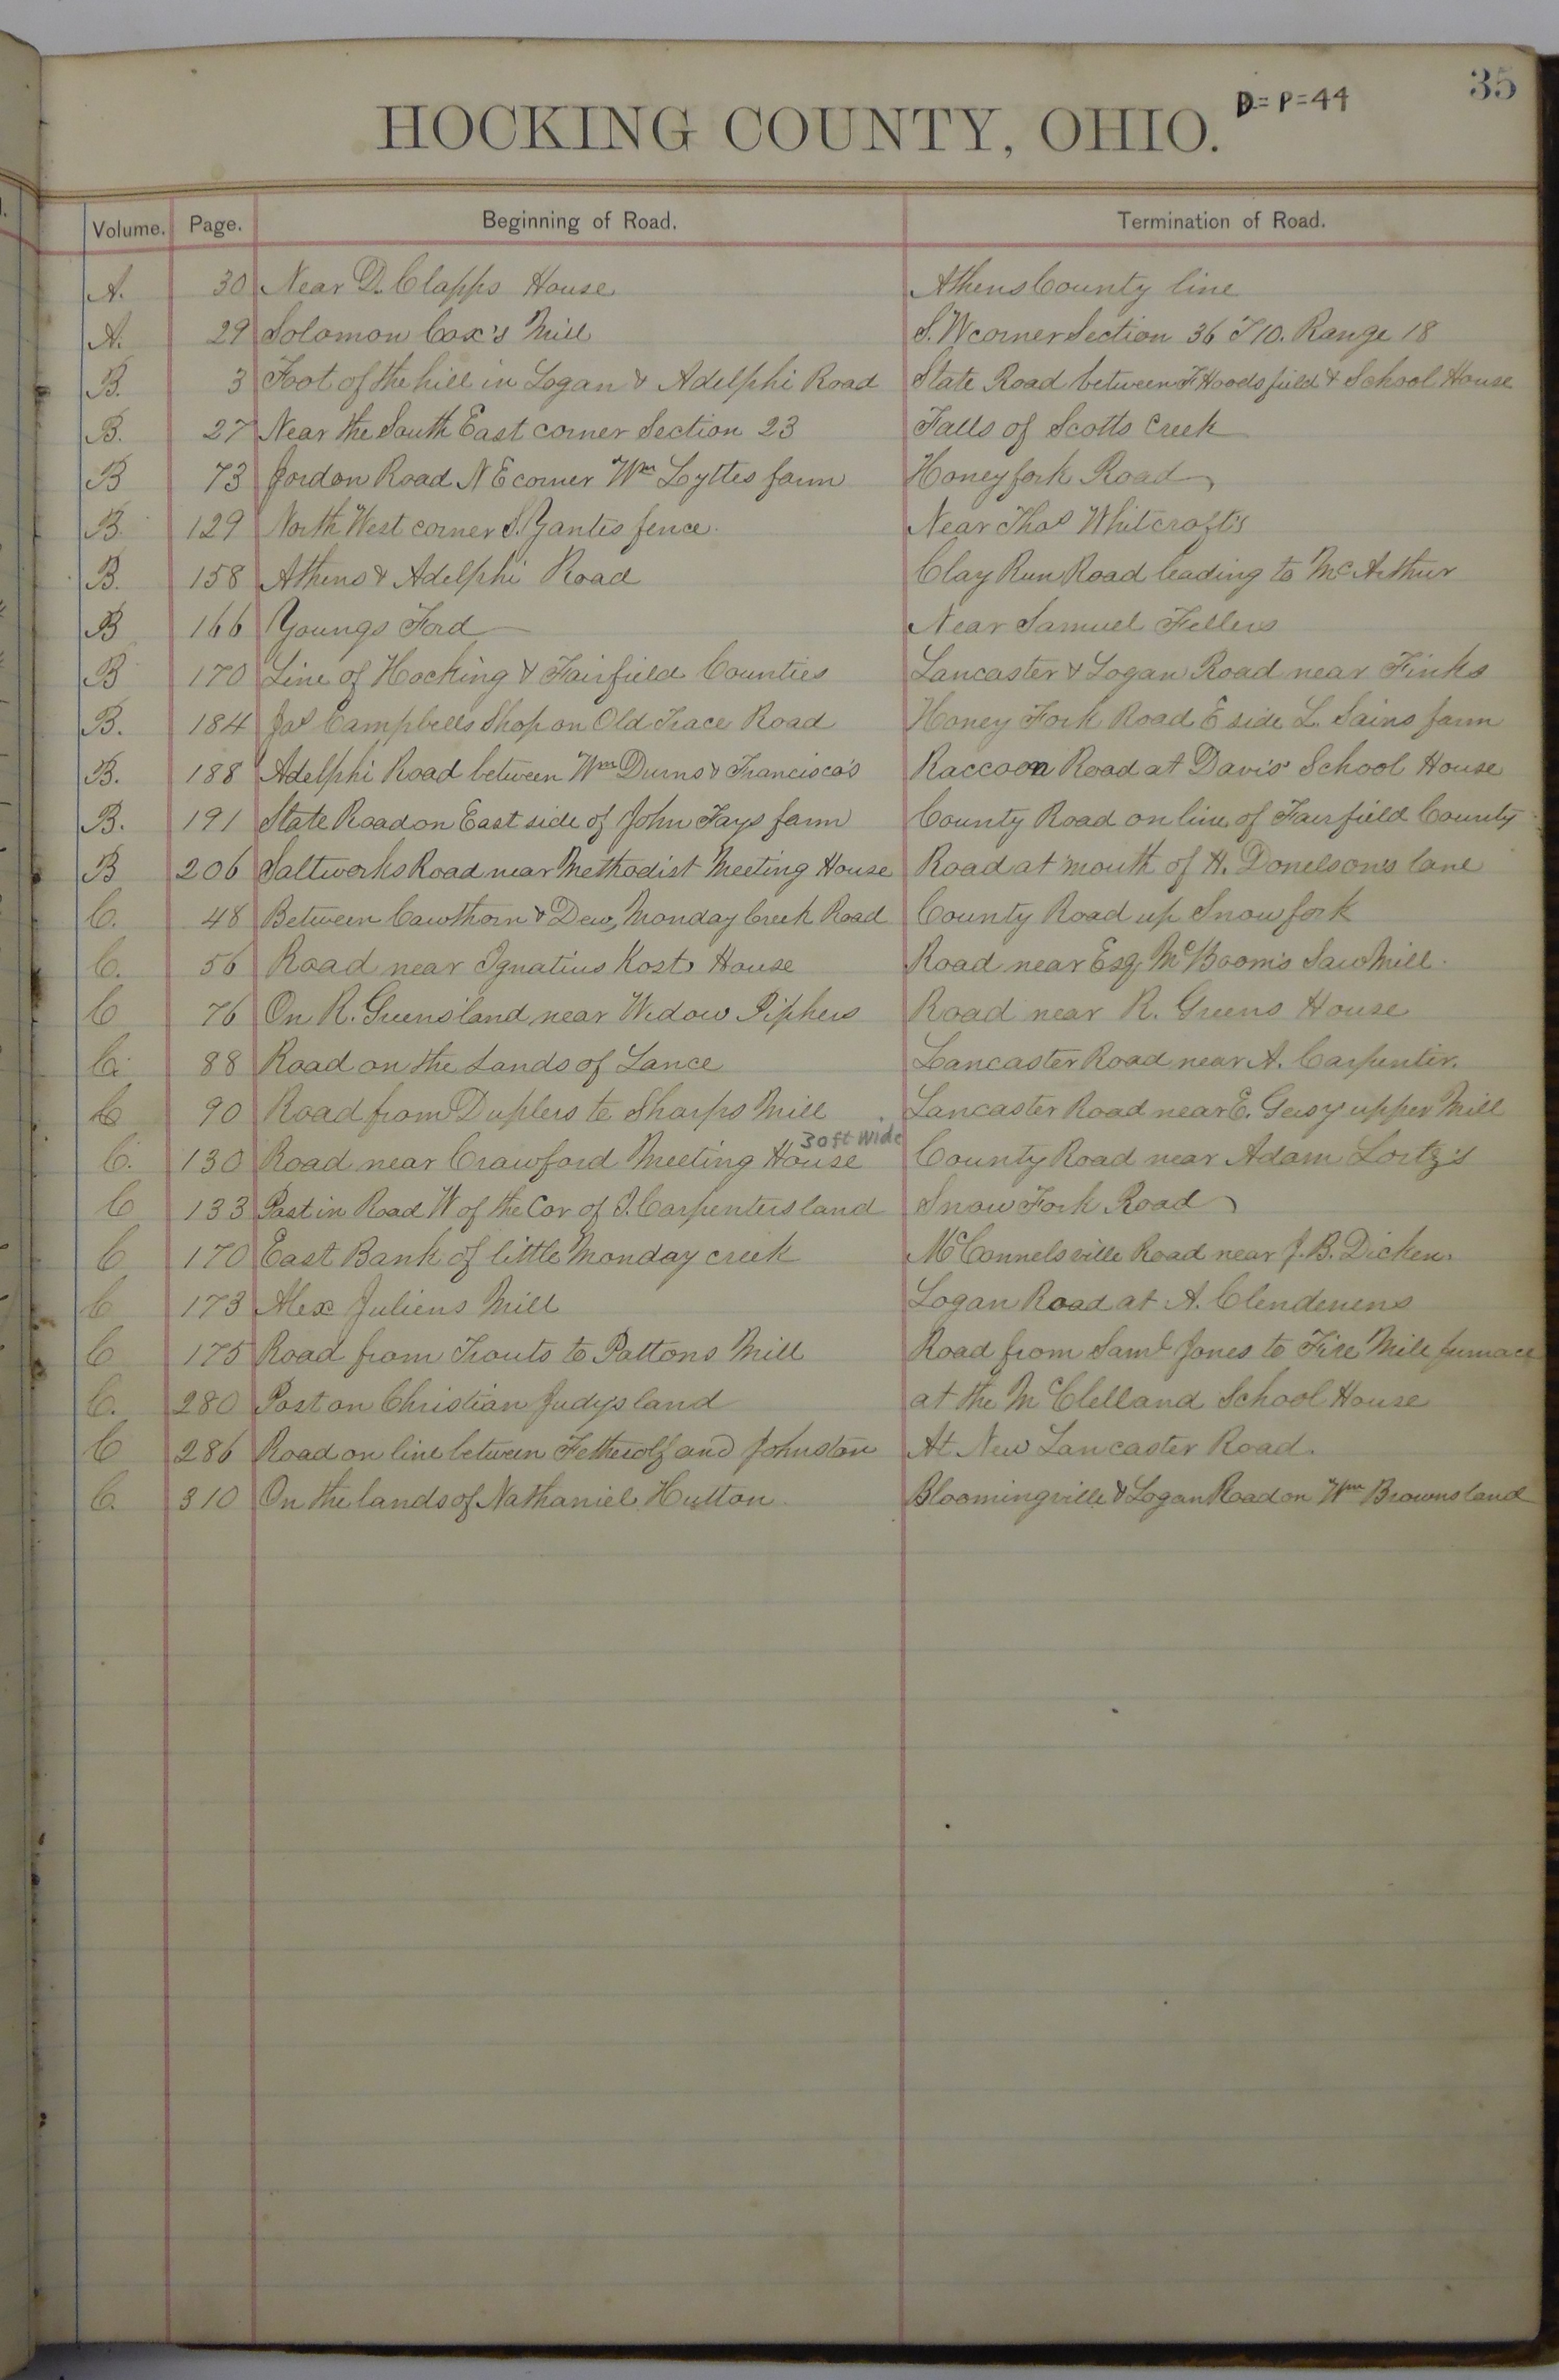 35
D=P=44
HOCKING COUNTY, OHIO.
Volume. Page. Beginning of Road. Termination of Road.
A. 30 Near D. Clapps House Athens County line
A. 29 Solomon Cox's Mill S. W corner Section 36 T 10. Range 18
B. 3 Foot of the hill in Logan & Adelphi Road State Road between F Hoods field & School House
B. 27 Near the South East corner Section 23 Falls of Scotts Creek
B 73 Jordon Road N E corner Wm Lyttes farm Honey fork Road
B. 129 North West corner S. Yantis fence. Near Thos Whitcraft's
B. 158 Athens & Adelphi Road Clay Run Road leading to McArthur
B 166 Youngs Ford Near Samuel Fellers
B 170 Line of Hocking & Fairfield Counties Lancaster & Logan Road near Finks
B. 184 Jas Campbells Shop on Old Trace Road Honey Fork Road E side L. Sains farm
B. 188 Adelphi Road between Wm Dums & Francisco's Raccoon Road at Davis' School House
B. 191 State Road on East side of John Fays farm County Road on line of Fairfield County
B 206 Saltworks Road near Methodist Meeting House Road at mouth of H. Donelson's lane
C. 48 Between Cawthorn & Dew, Monday Creek Road County Road up Snow fork
C. 56 Road near Ignatius Kosts House Road near Esq. McBoom's Saw Mill.
C 76 On R. Greens land near Widow Piphers Road near R. Greens House
C. 88 Road on the Lands of Lance Lancaster Road near A. Carpenter.
C 90 Road from Duplers to Sharps Mill Lancaster Road near E. upper Mill
30 ft wide
C. 130 Road near Crawford Meeting House County Road near Adam Lortz's
C 133 Post in Road W of the Cor of J. Carpenters land Snow Fork Road
C 170 East Bank of little Monday creek McConnelsville Road near J. B. Dicken.
C 173 Alex Juliens Mill Logan Road at A. Clendenens
C 175 Road from Trouts to Pattons Mill Road from Saml Jones to Five Mile furnace
C. 280 Post on Christian Judys land at the McClelland School House
C 286 Road on line between Fetherolf and Johnston At New Lancaster Road.
C. 310 On the lands of Nathaniel Hutton. Bloomingville & Logan Road on Wm Browns land